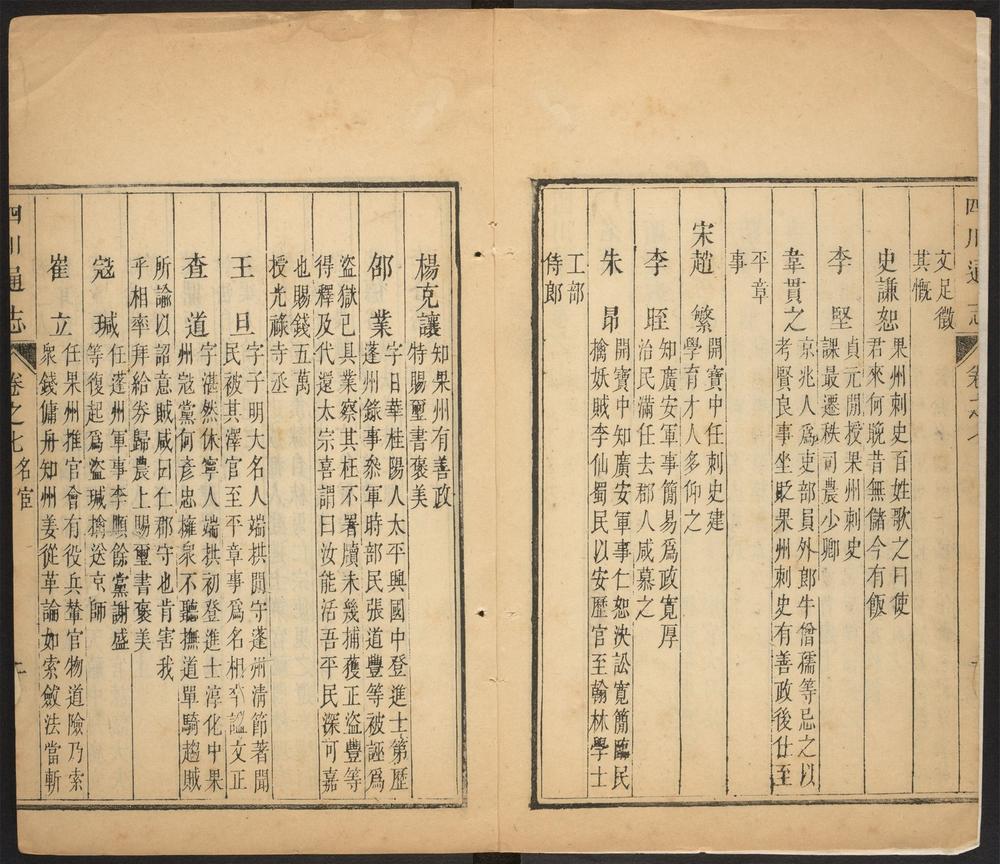 四川通志
卷之七
文足徵
其慨
史謙恕
果州刺史百姓歌之曰使
君來何晚昔無儲今有飯
李 堅
貞元間授果州刺史
課最遷秩司農少卿
韋貫之
京兆人爲吏部員外郎牛僧孺等忌之以
考賢良事坐貶果州刺史有善政後仕至
平章
事
宋趙 繁
開寶中任刺史建
學育才人多仰之
李 晊
知廣安軍事簡易爲政寬厚
治民滿任去郡人咸慕之
朱 昂
開寶中知廣安軍事仁恕決訟寬簡臨民
擒妖賊李仙蜀民以安歷官至翰林學士
工部
侍郎
楊克讓
知果州有善政
特賜璽書褒美
邵 業
字日華桂陽人太平興國中登進士第歷
蓬州錄事叅軍時部民張道豐等被誣爲
盜獄已具業察其枉不署牘未幾捕獲正盜豐等
得釋及代還太宗喜謂曰汝能活吾平民深可嘉
也賜錢五萬
授光祿寺丞
王 旦
字子明大名人端拱間守蓬州清節著聞
民被其澤官至平章事爲名相卒諡文正
查 道
字湛然休寧人端拱初登進士淳化中果
州宼黨何彥忠擁衆不聽撫道單騎趨賊
所諭以詔意賊咸曰仁郡守也肯害我
乎相率拜給劵歸農上賜璽書褒美
宼 瑊
任蓬州軍事李順餘黨謝盛
等復起爲盜瑊擒送京師
崔 立
任果州推官會有役兵輦官物道險乃索
衆錢傭舟知州姜從革論如索斂法當斬
四川通志
卷之七
名宦